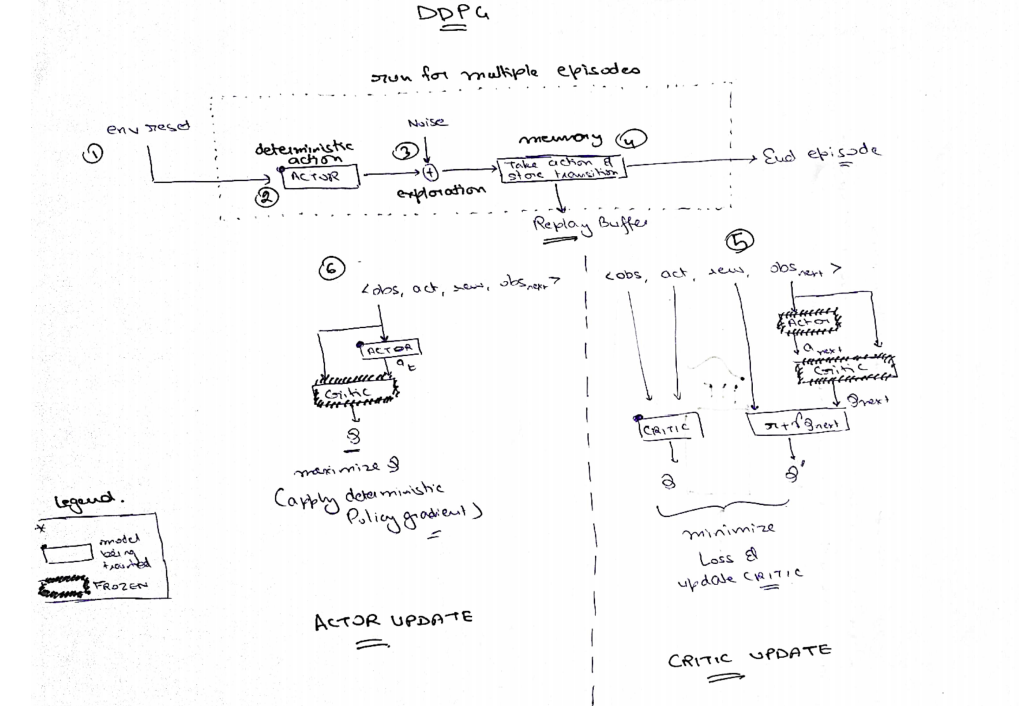 DDPG
run for multiple episodes
env reset
①
deterministic
action
②
ACTOR
Noise
③
+
exploration
memory ④
Take action &
store transition
End episode
Replay Buffer
⑥
<obs, act, rew, obs next>
ACTOR
a t
Critic
Q
maximize Q
(apply deterministic
Policy gradient)
ACTOR UPDATE
⑤
<obs, act, rew, obs next>
Actor
a next
Critic
Q next
CRITIC
r+γQ next
Q
Q'
minimize
Loss &
update CRITIC
CRITIC UPDATE
Legend.
*
model
being
trained
FROZEN